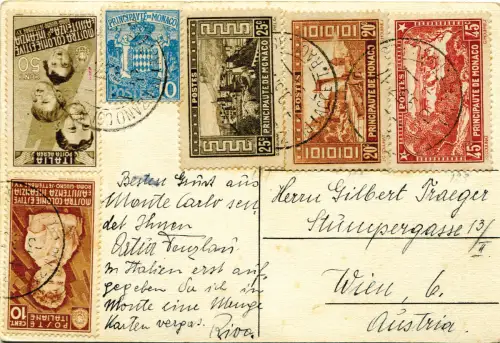 MOSTRA COLONIE ESTIVE
50
ITALIA
POSTA AEREA
PRINCIPAUTÉ DE MONACO
POSTES
25c
PRINCIPAUTE DE MONACO
25c
POSTES
20c
PRINCIPAUTE DE MONACO
20c
POSTES
45c
PRINCIPAUTE DE MONACO
45c
MOSTRA COLONIE ESTIVE
10 CENT
POSTE ITALIANE
Besten Gruß aus
Monte Carlo sen
det Ihnen
in Italien erst auf
gegeben Da ich in
Monte eine Menge
Karten vergas.
Herrn Gilbert Traeger
Stumpergasse 13/II
Wien, 6.
Austria.